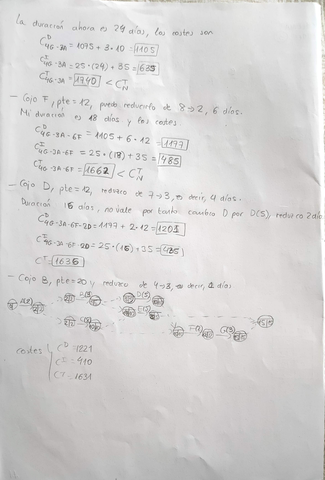 La duración ahora es 24 días, los costes son
C^D_4G-3A = 1075 + 3·10 = 1105
C^I_4G-3A = 25·(24) + 35 = 635
C^T_4G-3A = 1740 < C^T_N
- Cojo F, pte = 12, puedo reducirlo de 8→2, 6 días.
Mi duración es 18 días y los costes
C^D_4G-3A-6F = 1105 + 6·12 = 1177
C^I_4G-3A-6F = 25·(18) + 35 = 485
C^T_4G-3A-6F = 1662 < C^T_N
- Cojo D, pte = 12, reduzco de 7→3, es decir, 4 días.
Duración 16 días, no vale por tanto cambio D por D(5), reduzco 2 días
C^D_4G-3A-6F-2D = 1177 + 2·12 = 1201
C^I_4G-3A-6F-2D = 25·(16) + 35 = 435
C^T = 1636
- Cojo B, pte = 20 y reduzco de 4→3, es decir, 1 días
B(3) D(5)
C(3) E(2)
F(2) G(3)
costes C^D = 1221
C^I = 410
C^T = 1631